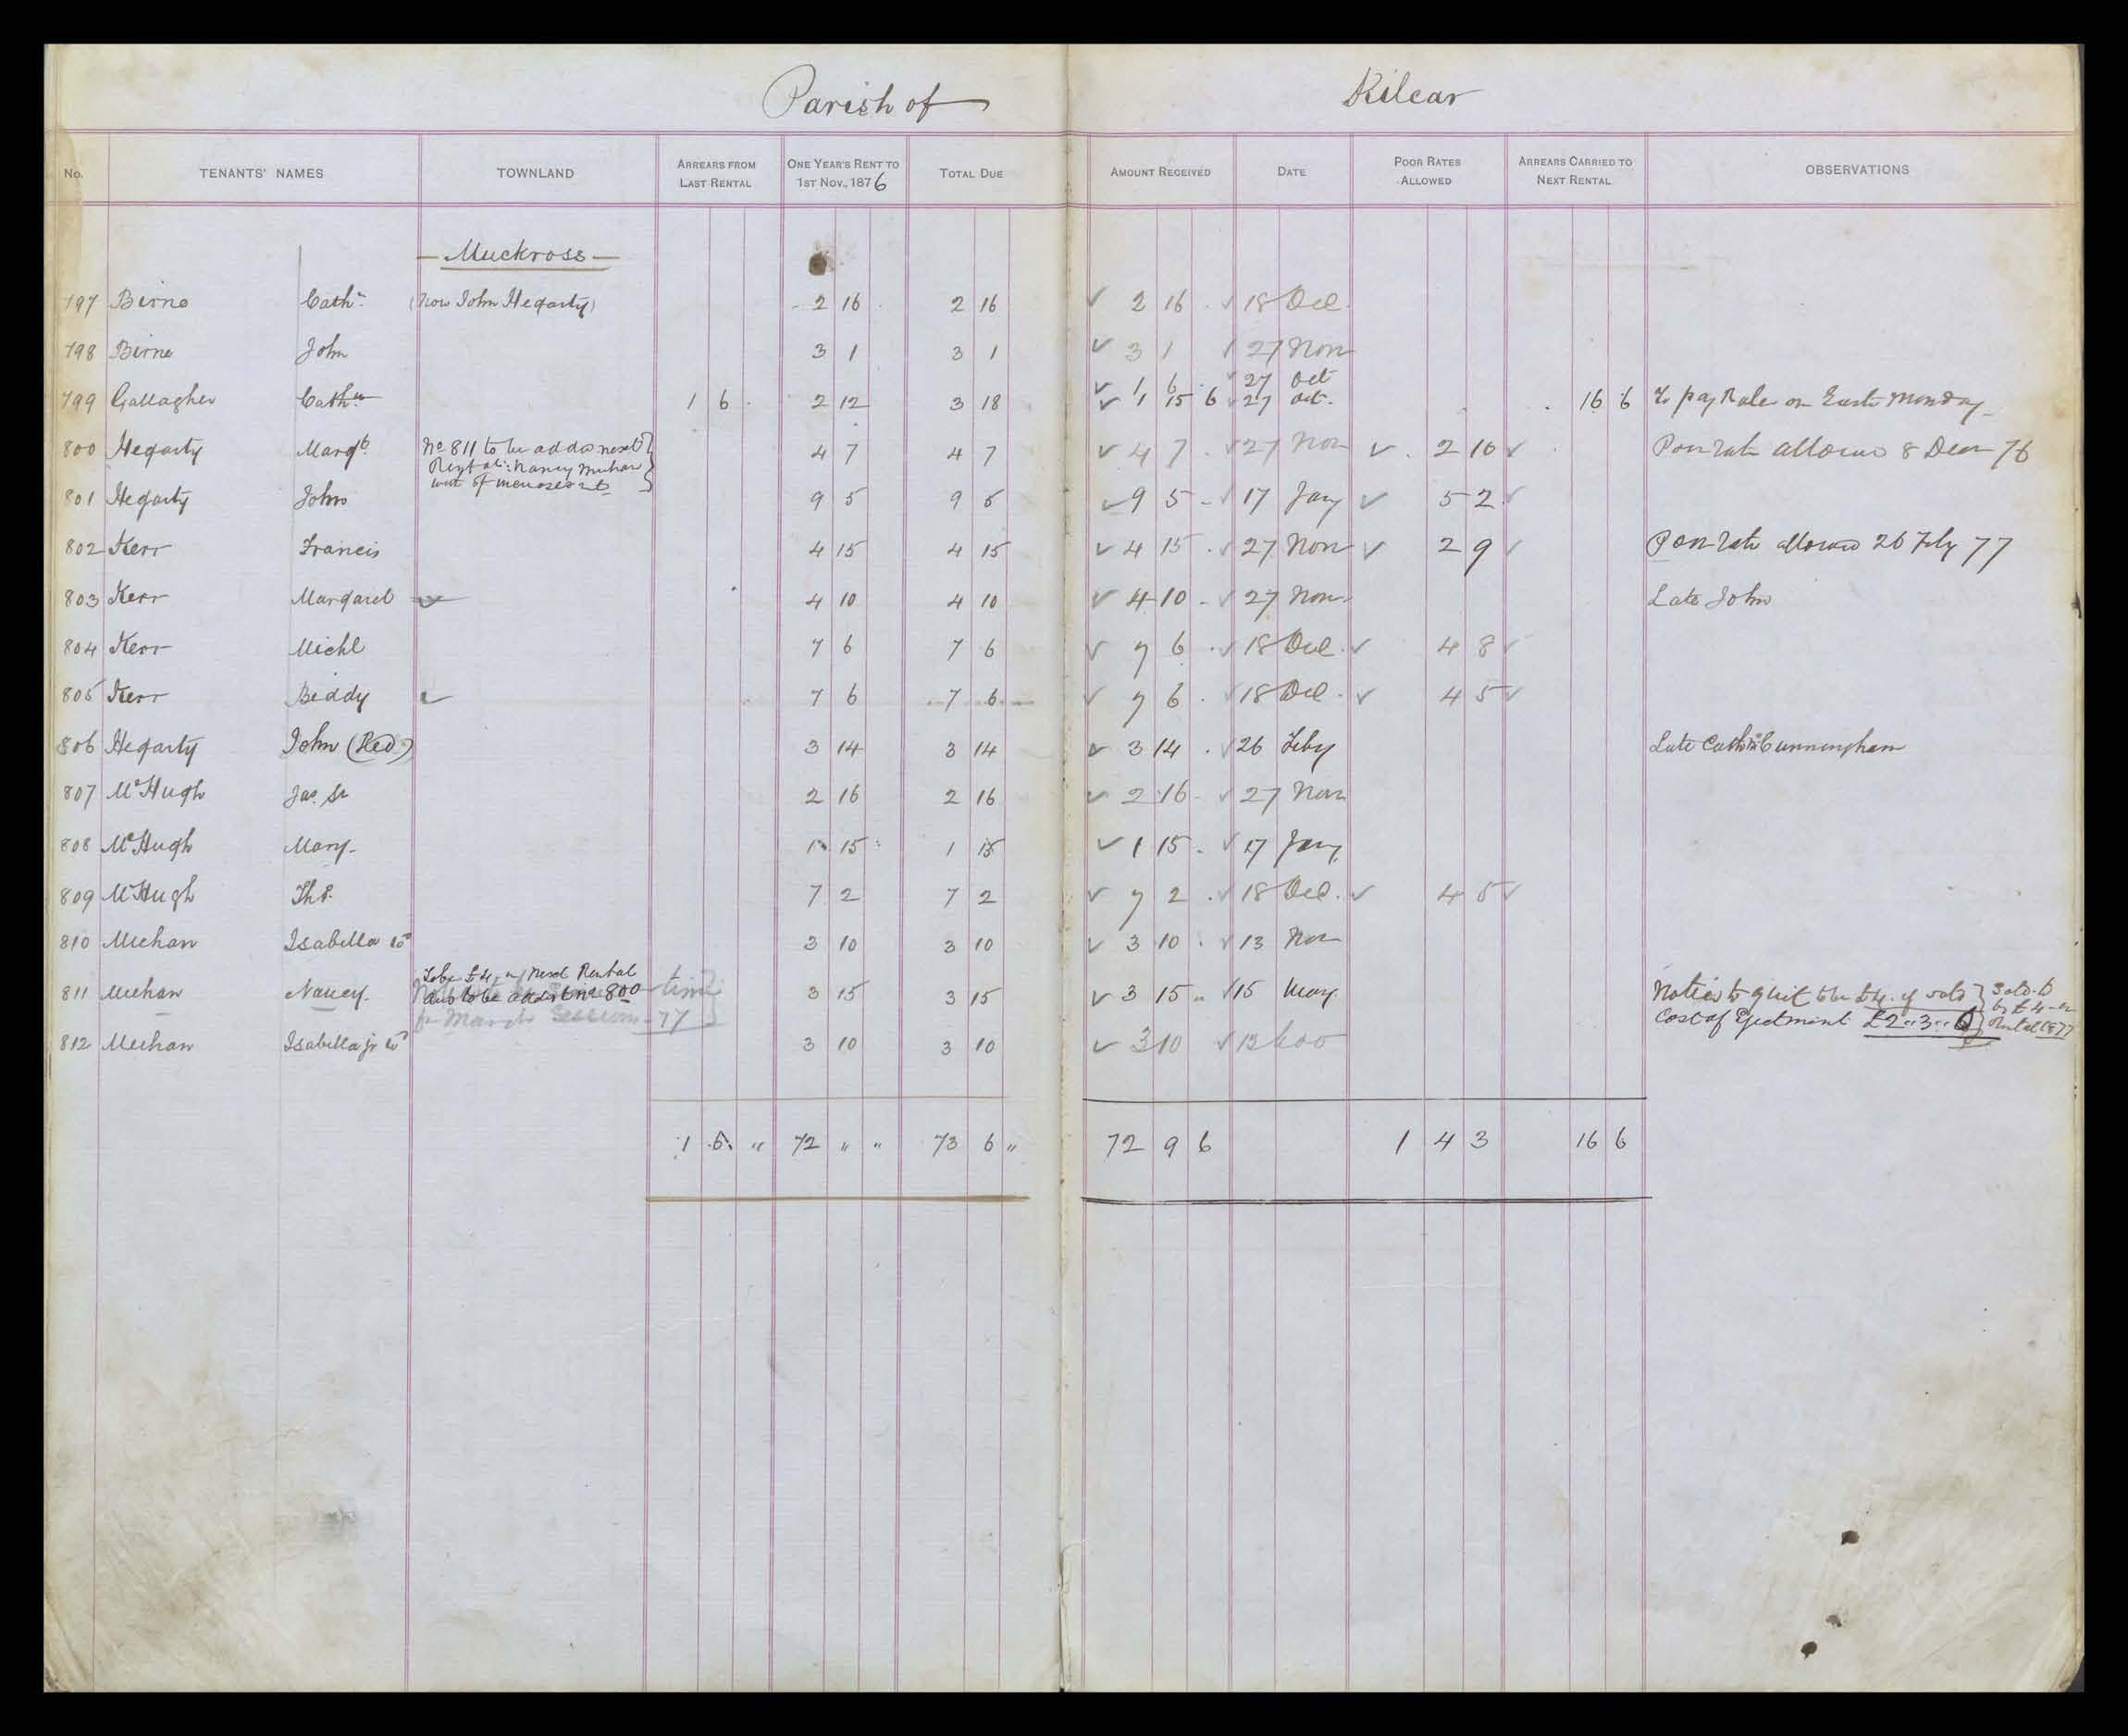 Parish of Kilcar
No. TENANTS' NAMES TOWNLAND ARREARS FROM LAST RENTAL ONE YEAR'S RENT TO 1ST NOV., 1876 TOTAL DUE AMOUNT RECEIVED DATE POOR RATES ALLOWED ARREARS CARRIED TO NEXT RENTAL OBSERVATIONS
— Muckross —
797 Birne Cathn. (now John Hegarty) 2 16 2 16 ✓ 2 16 . ✓ 18 Dec.
798 Birne John 3 1 3 1 ✓ 3 1 ✓ 27 Nov
✓ 1 6 . ✓ 27 Oct
799 Gallagher Cathn 1 6 . 2 12 3 18 ✓ 1 15 6 ✓ 27 Oct. 16 6 To pay Rate on Easter Monday
800 Hegarty Margt. No 811 to be added next 4 7 4 7 ✓ 4 7 . ✓ 27 Nov ✓ 2 10 ✓ Poor rate allowed 8 Decr 76
Rental: Nancy Meehan
801 Hegarty John 9 5 9 5 ✓ 9 5 - ✓ 17 Jany ✓ 5 2 ✓
802 Kerr Francis 4 15 4 15 ✓ 4 15 . ✓ 27 Nov ✓ 2 9 ✓ Poor rate allowed 26 Feby 77
803 Kerr Margaret ✓ 4 10 4 10 ✓ 4 10 - ✓ 27 Nov. Late John
804 Kerr Michl 7 6 7 6 ✓ 7 6 . ✓ 18 Dec. ✓ 4 8 ✓
805 Kerr Biddy ✓ 7 6 7 6 ✓ 7 6 . ✓ 18 Dec. ✓ 4 5 ✓
806 Hegarty John (Red) 3 14 3 14 ✓ 3 14 . ✓ 26 Feby Late Cathne Cunningham
807 McHugh Jas. Sr 2 16 2 16 ✓ 2 16 - ✓ 27 Nov
808 McHugh Mary 1 15 1 15 ✓ 1 15 . ✓ 17 Jany
809 McHugh Ths. 7 2 7 2 ✓ 7 2 . ✓ 18 Dec. ✓ 4 5 ✓
810 Meehan Isabella 3 10 3 10 ✓ 3 10 . ✓ 13 Nov
To be £4 in next Rental
811 Meehan Nancy. to be added to No 800 time 3 15 3 15 ✓ 3 15 " ✓ 15 May Notice to quit to be £4. if sold } Sold. to be £4 in
for March Sessions - 77 Cost of Ejectment £2..3..6 } Rental 1877
812 Meehan Isabella jr 3 10 3 10 ✓ 3 10 ✓ 13
1 6 " 72 " " 73 6 " 72 9 6 1 4 3 16 6